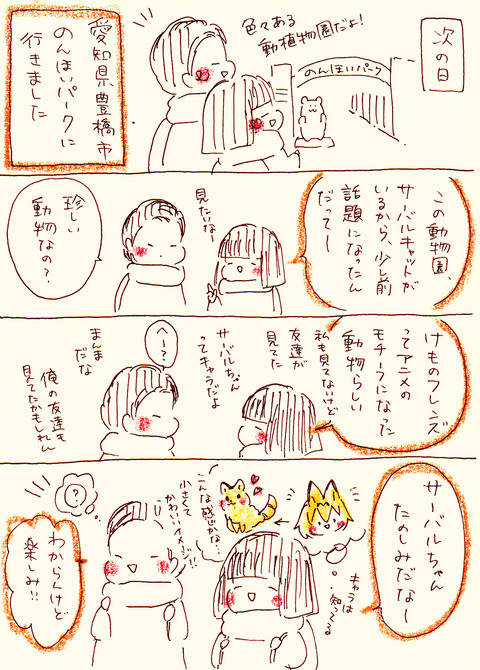 次の日
のんほいパーク
色々ある
動植物園だよ!
愛知県豊橋市
のんほいパークに
行きました
この動物園、
サーバルキャットが
いるから、少し前
話題になったん
だってー
見たいなー
珍しい
動物なの?
けものフレンズ
ってアニメの
モチーフになった
動物らしい
私も見てないけど
友達が
見てた
サーバルちゃん
ってキャラだよ
へー?
まんま
だな
俺の友達も
見てたかもしれん
サーバルちゃん
たのしみだなー
キャラは
知ってる
こんな感じかな…
小さくて
かわいいイメージ!!
?
わからんけど
楽しみ!!